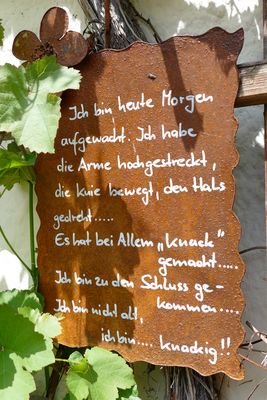 Ich bin heute Morgen
aufgewacht. Ich habe
die Arme hochgestreckt,
die Knie bewegt, den Hals
gedreht.....
Es hat bei Allem „knack"
gemacht....
Ich bin zu dem Schluss ge-
kommen....
Ich bin nicht alt,
ich bin.... knackig!!